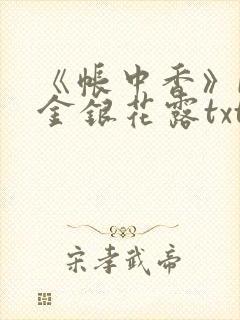 《帐中香》
金银花露txt
宋孝武帝